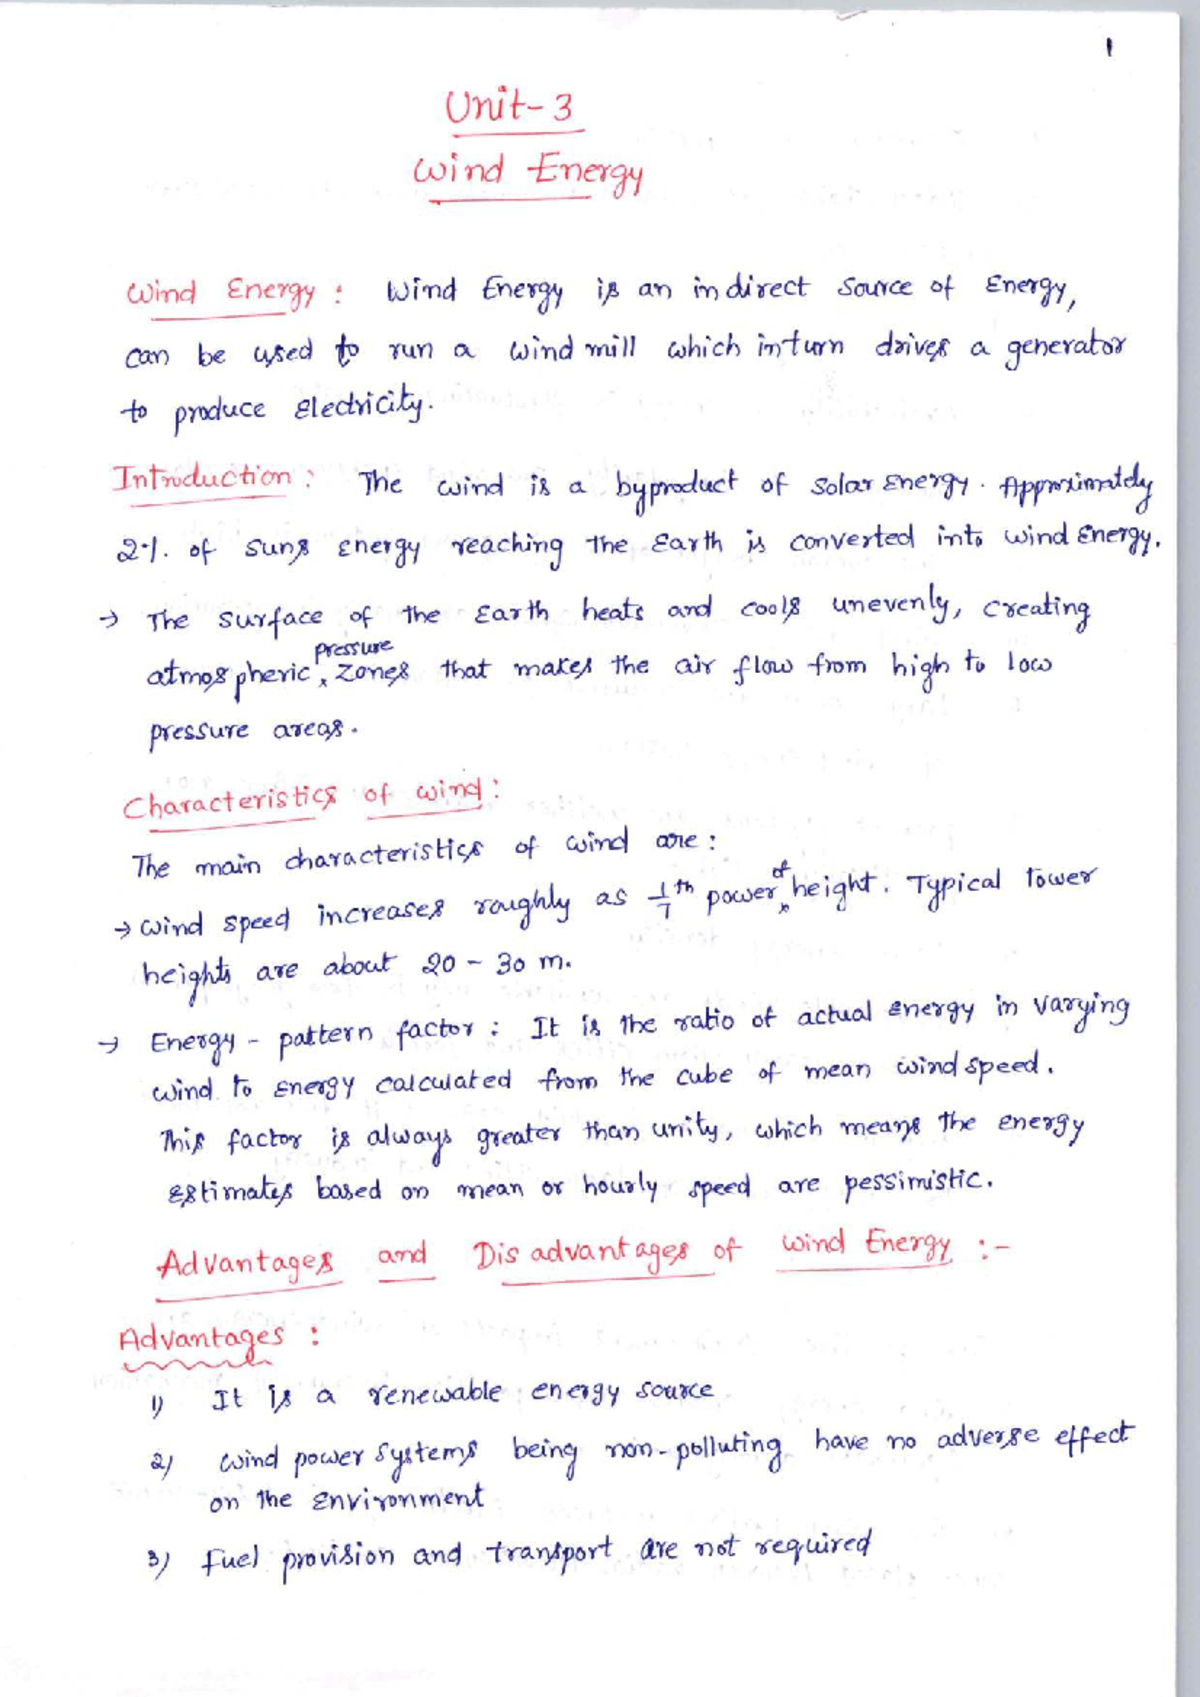 1
Unit-3
Wind Energy
Wind Energy : Wind Energy is an indirect source of Energy,
can be used to run a wind mill which inturn drives a generator
to produce Electricity.
Introduction : The wind is a byproduct of solar Energy. Approximately
2%. of suns energy reaching the Earth is converted into wind Energy.
→ The surface of the Earth heats and cools unevenly, creating
atmospheric pressure zones that makes the air flow from high to low
pressure areas.
Characteristics of wind :
The main characteristics of wind are :
→ wind speed increases roughly as 1/7 th power of height. Typical tower
heights are about 20 - 30 m.
→ Energy - pattern factor : It is the ratio of actual energy in varying
wind to energy calculated from the cube of mean wind speed.
This factor is always greater than unity, which means the energy
estimates based on mean or hourly speed are pessimistic.
Advantages and Disadvantages of wind Energy :-
Advantages :
1) It is a renewable energy source
2) wind power systems being non-polluting have no adverse effect
on the environment
3) Fuel provision and transport are not required